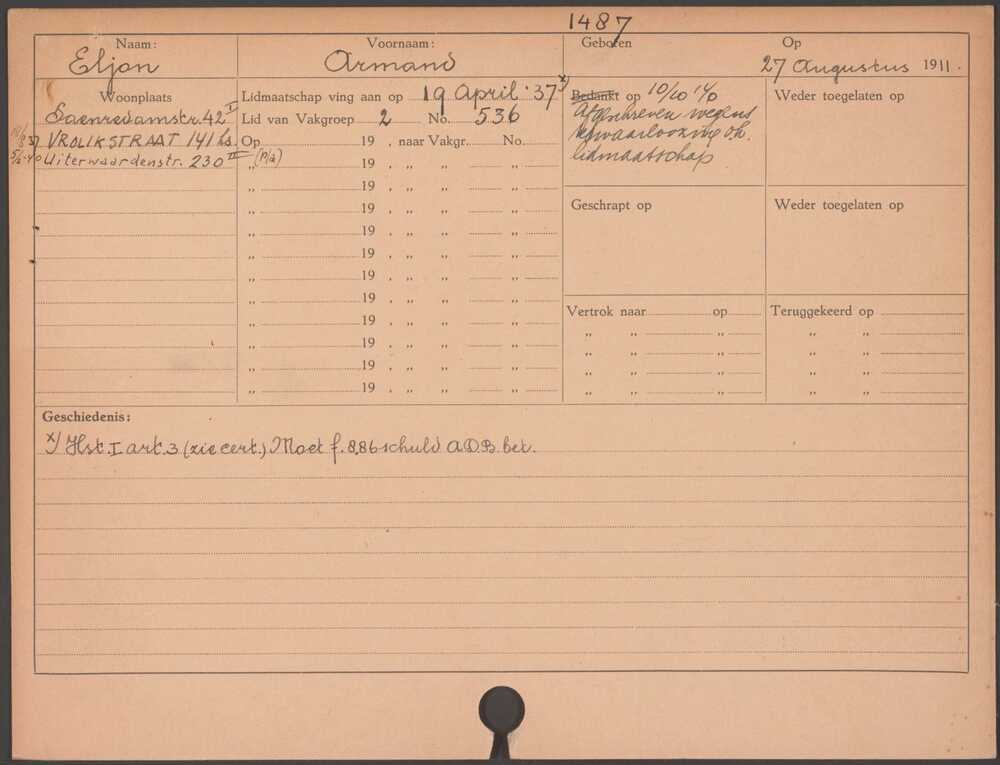 1487
Naam: Voornaam: Geboren Op
Eljon Armand 27 Augustus 1911.
Woonplaats Lidmaatschap ving aan op 19 April '37 x) Bedankt op 10/10 '40 Weder toegelaten op
Saenredamstr. 42 I Lid van Vakgroep 2 No. 536 Afgeschreven wegens
37 VROLIKSTRAAT 141 hs. Op 19 , naar Vakgr. No. verwaarloozing v.h.
Uiterwaardenstr. 230 III (n/a) „ 19 , „ „ „ lidmaatschap
„ 19 , „ „ „
„ 19 , „ „ „ Geschrapt op Weder toegelaten op
„ 19 , „ „ „
„ 19 , „ „ „
„ 19 , „ „ „
„ 19 , „ „ „
„ 19 , „ „ „ Vertrok naar op Teruggekeerd op
„ 19 , „ „ „ „ „ „ „
„ 19 , „ „ „ „ „ „ „
„ 19 , „ „ „ „ „ „ „
„ 19 , „ „ „ „ „ „ „
Geschiedenis:
x) Hst. I art. 3 (zie cert.) Moet f. 8,86 schuld A.D.B. bet.